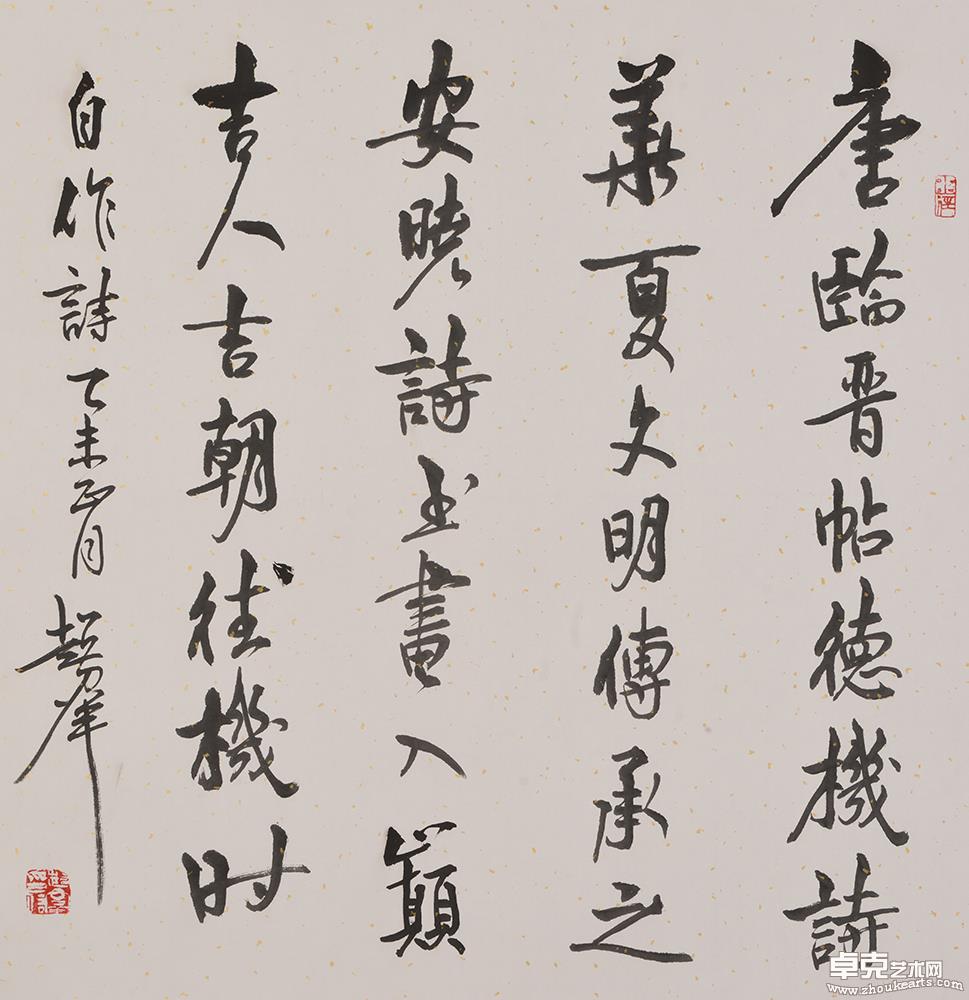 唐臨晋帖德機詩
華夏文明傳承之
安曉詩書畫入巔
吉人吉朝往機时
自作詩乙未正月超群
卓克艺术网
www.zhoukearts.com